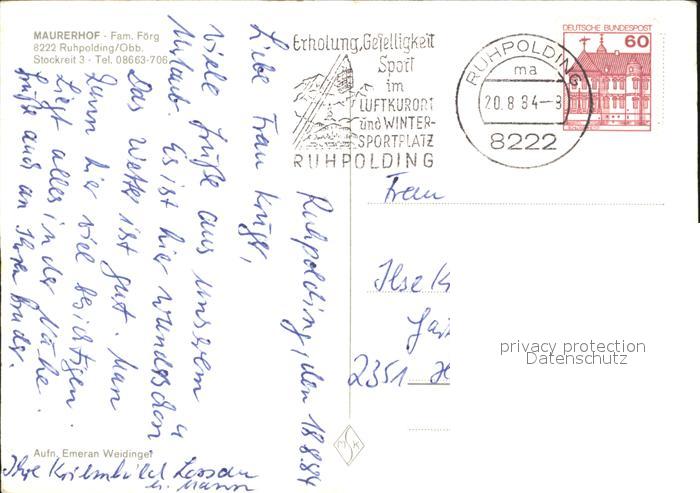 MAURERHOF - Fam. Förg
8222 Ruhpolding/Obb.
Stockreit 3 - Tel. 08663-706
Erholung, Geselligkeit
Sport
im
LUFTKURORT
und WINTER-
SPORTPLATZ
RUHPOLDING
RUHPOLDING
ma
20.8.84-8
8222
DEUTSCHE BUNDESPOST
60
Ruhpolding, den 18.8.84
Liebe Frau
viele Grüße aus unserem
Urlaub. Es ist hier wunderschön u
Das Wetter ist gut. Man
kann hier viel besichtigen.
Liegt alles in der Nähe.
Grüße auch an Ihren Bruder.
Ihre
u. Mann
Frau
Ilse K
2351
privacy protection
Datenschutz
Aufn. Emeran Weidinger
M S K